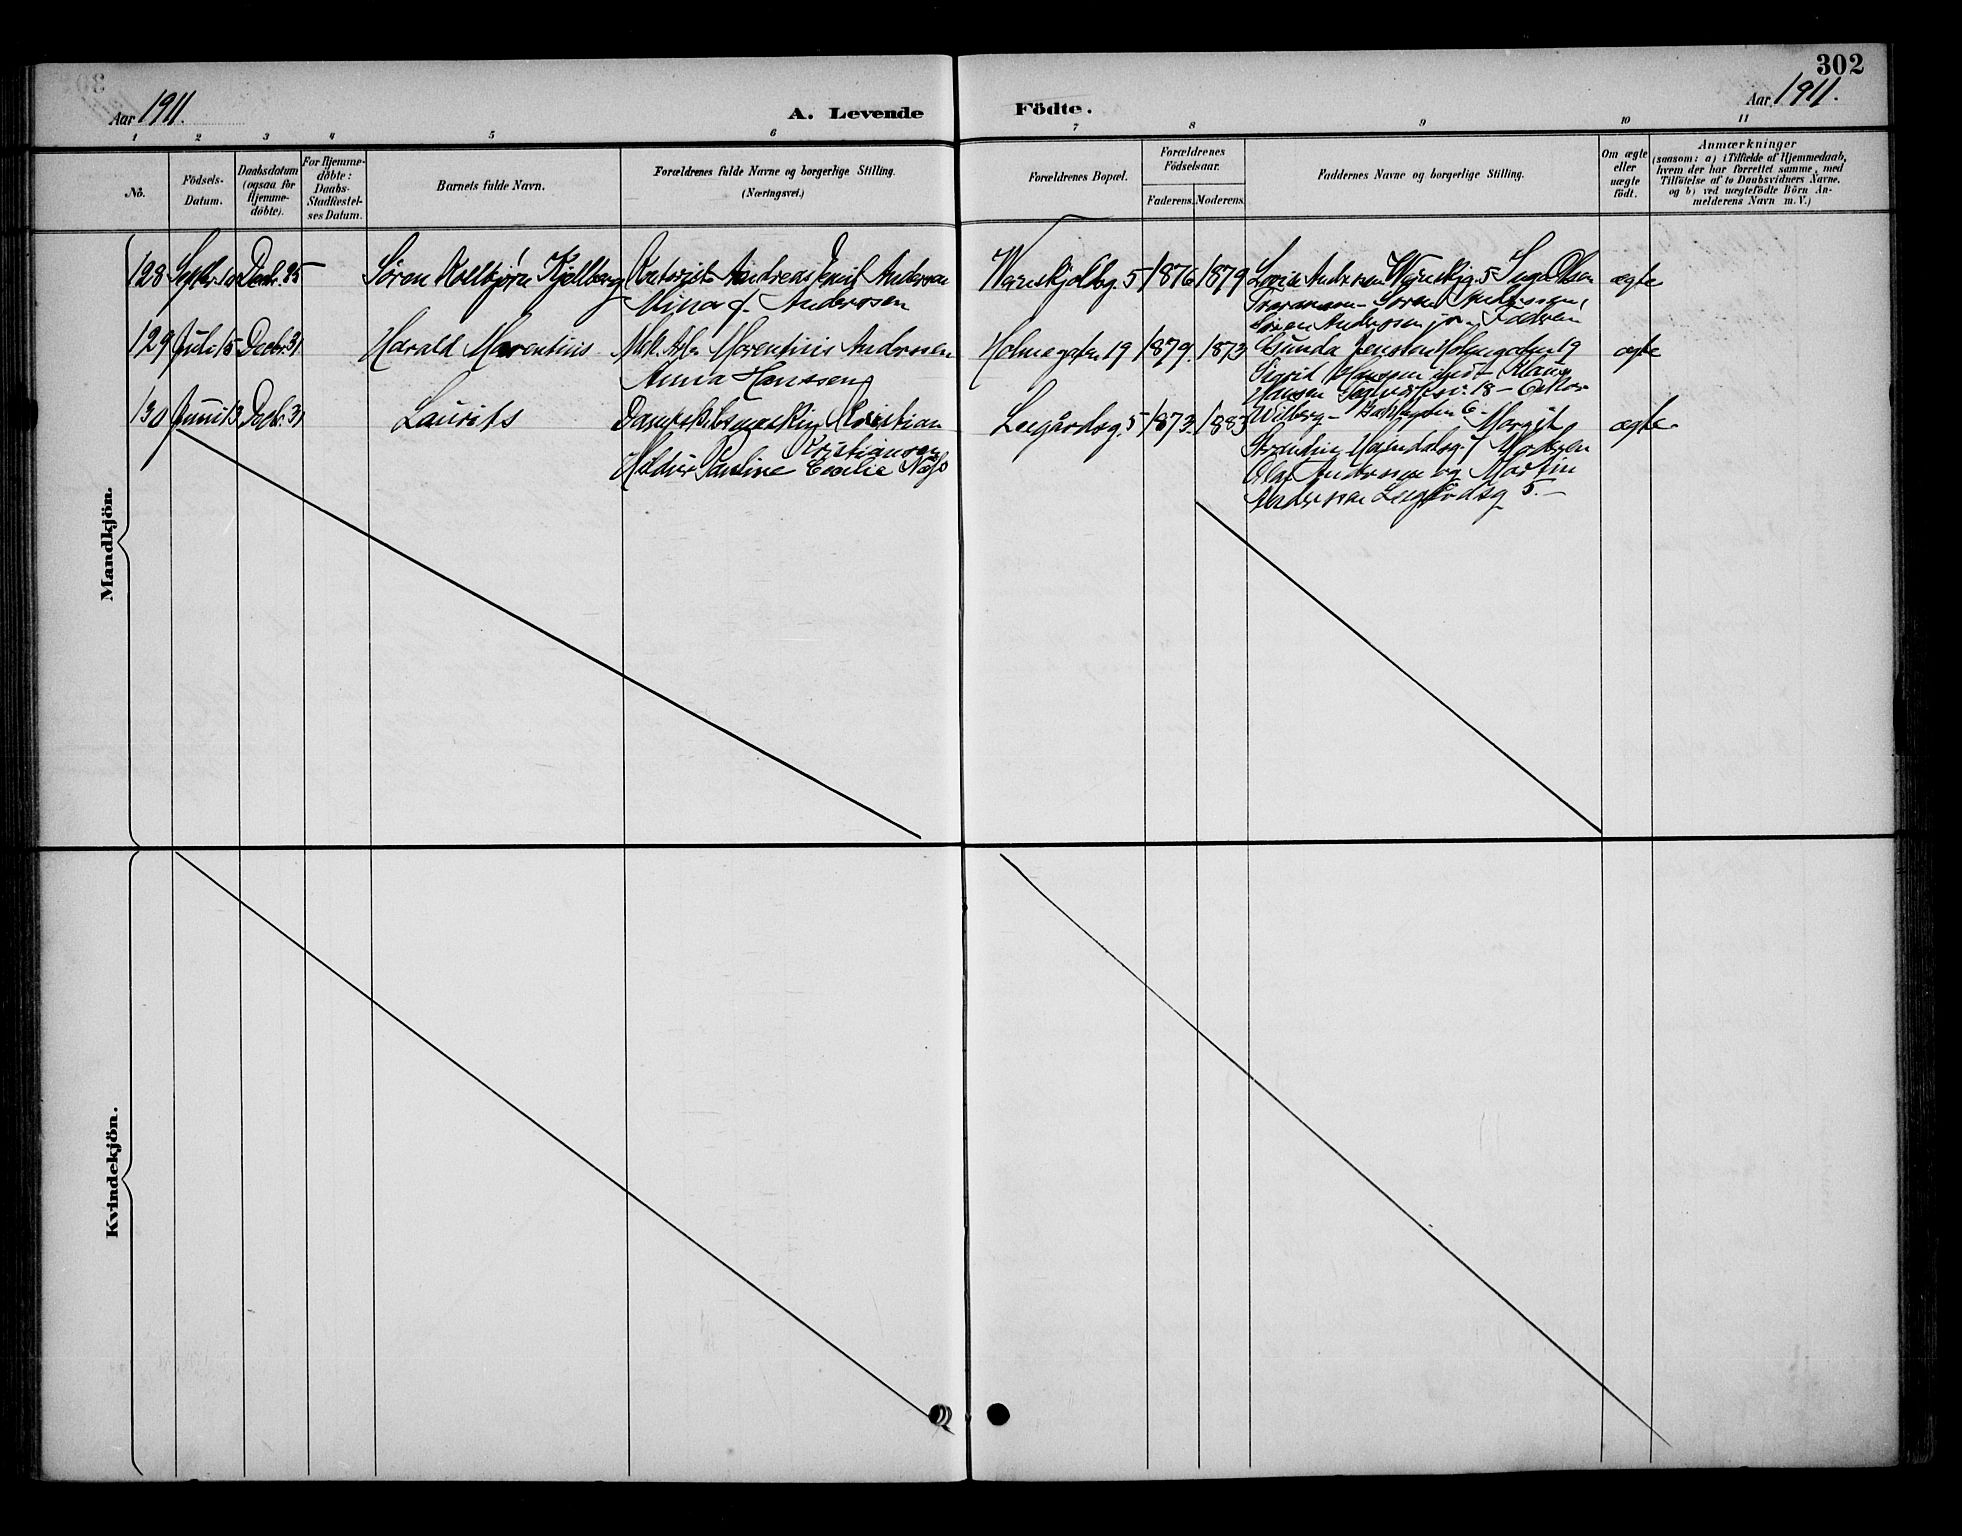 302
Aar 1911.
A. Levende Födte.
Aar 1911.
1 2 3 4 5 6 7 8 9 10 11
No.
Födsels-
Datum.
Daabsdatum
(ogsaa for
Hjemme-
döbte).
For Hjemme-
döbte:
Daabs-
Stadfæstel-
ses Datum.
Barnets fulde Navn.
Forældrenes fulde Navne og borgerlige Stilling.
(Næringsvei.)
Forældrenes Bopæl.
Forældrenes
Födselsaar.
Faderens. Moderens.
Faddernes Navne og borgerlige Stilling.
Om ægte
eller
uægte
födt.
Anmærkninger
(saasom: a) i Tilfælde af Hjemmedaab,
hvem der har forrettet samme, med
Tilföielse af to Daabsvidners Navne,
og b) ved uægtefödte Börn An-
melderens Navn m. V.)
Mandkjön.
128 Septbr. 10 Decbr. 25 Søren Kolbjørn Kjellberg Kontorist Andreas Emil Andersen
Mina f. Anderssen
Wærnskjoldsg. 5 1876 1879
Andersen 5 Olsen
Søren
Søren Anderssen jr. Faderen
ægte
129 Juli 15 Decbr. 31. Harald Marentinius Marentinius Andersen
Anna Hanssen
Holmegaten 19 1879. 1873
Gunda Jensen Holmegaten 19
Sigrid Hanssen Klaus
Hansen 18 - Oskar
Wilberg - 6 -
ægte
130 Juni 13 Decbr. 31 Laurits Kristian
Kristiansen
Pauline Emilie Næss
Leegårdsg. 5 1873. 1883
Margit
Moderen
Olaf Anderssen og Martin
Anderssen Leegårdsg 5. -
ægte.
Kvindekjön.